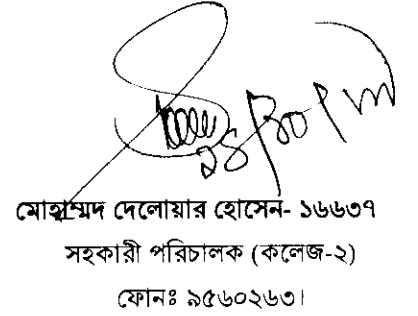 মোহাম্মদ দেলোয়ার হোসেন- ১৬৬৩৭
সহকারী পরিচালক (কলেজ-২)
ফোনঃ ৯৫৬০২৬৩।